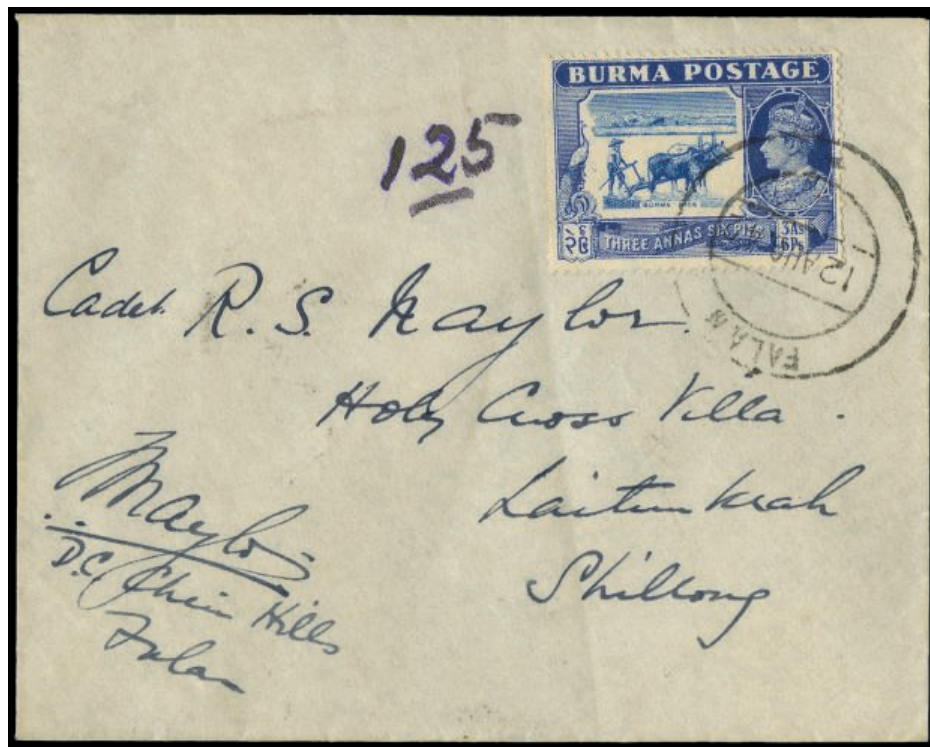 BURMA POSTAGE
125
BURMA RICE
THREE ANNAS SIX PIES
3As 6Ps
12 AUG
FALAM
Cadet R. S. Naylor.
Holy Cross Villa.
Laitumkrah
Shillong
Naylor
D.C. Chin Hills
Falam